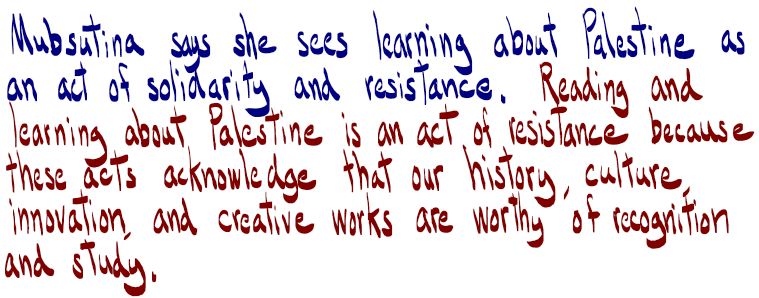 Mubsutina says she sees learning about Palestine as
an act of solidarity and resistance. Reading and
learning about Palestine is an act of resistance because
these acts acknowledge that our history, culture,
innovation, and creative works are worthy of recognition
and study.